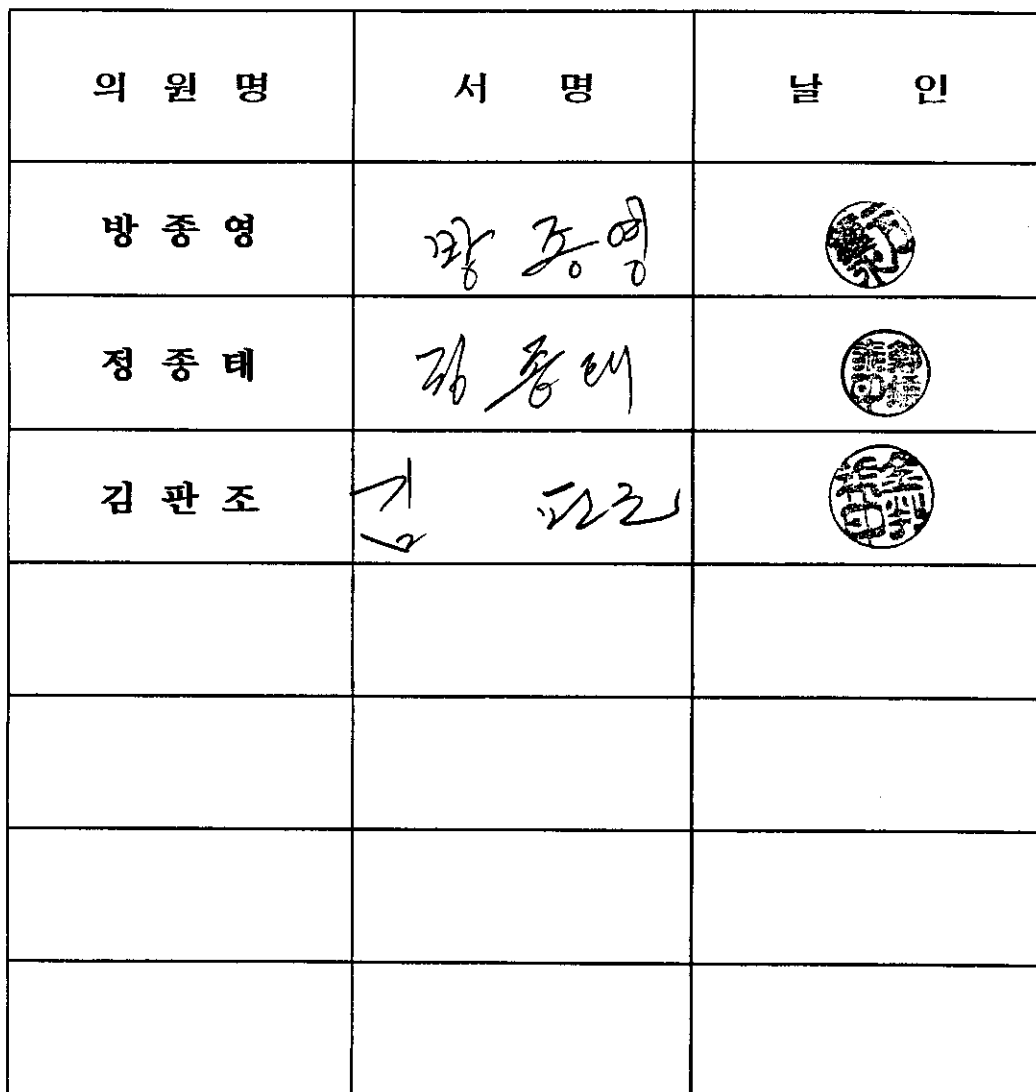 의 원 명 서 명 날 인
방 종 영 방 종 영
정 종 태 정 종 태
김 판 조 김 판조